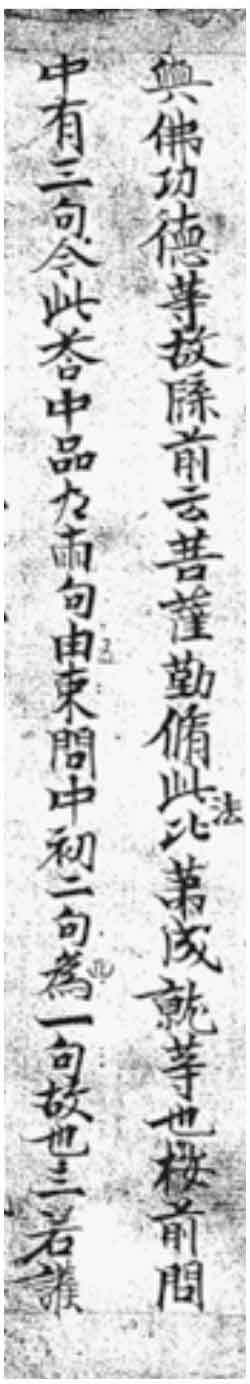 與佛功德等故牒前云菩薩勤脩此法比苐成就等也校前問
中有三句今此荅中品九兩句由束問中初二句為一句故也三若誰